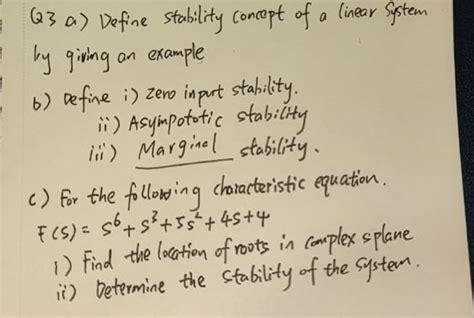 Q3 a) Define stability concept of a linear system
by giving an example
b) Define i) Zero input stability.
ii) Asympototic stability
iii) Marginal stability.
c) For the following characteristic equation.
F(S) = S⁶ + S³ + 5S² + 4S + 4
i) Find the location of roots in complex s plane
ii) Determine the stability of the system.